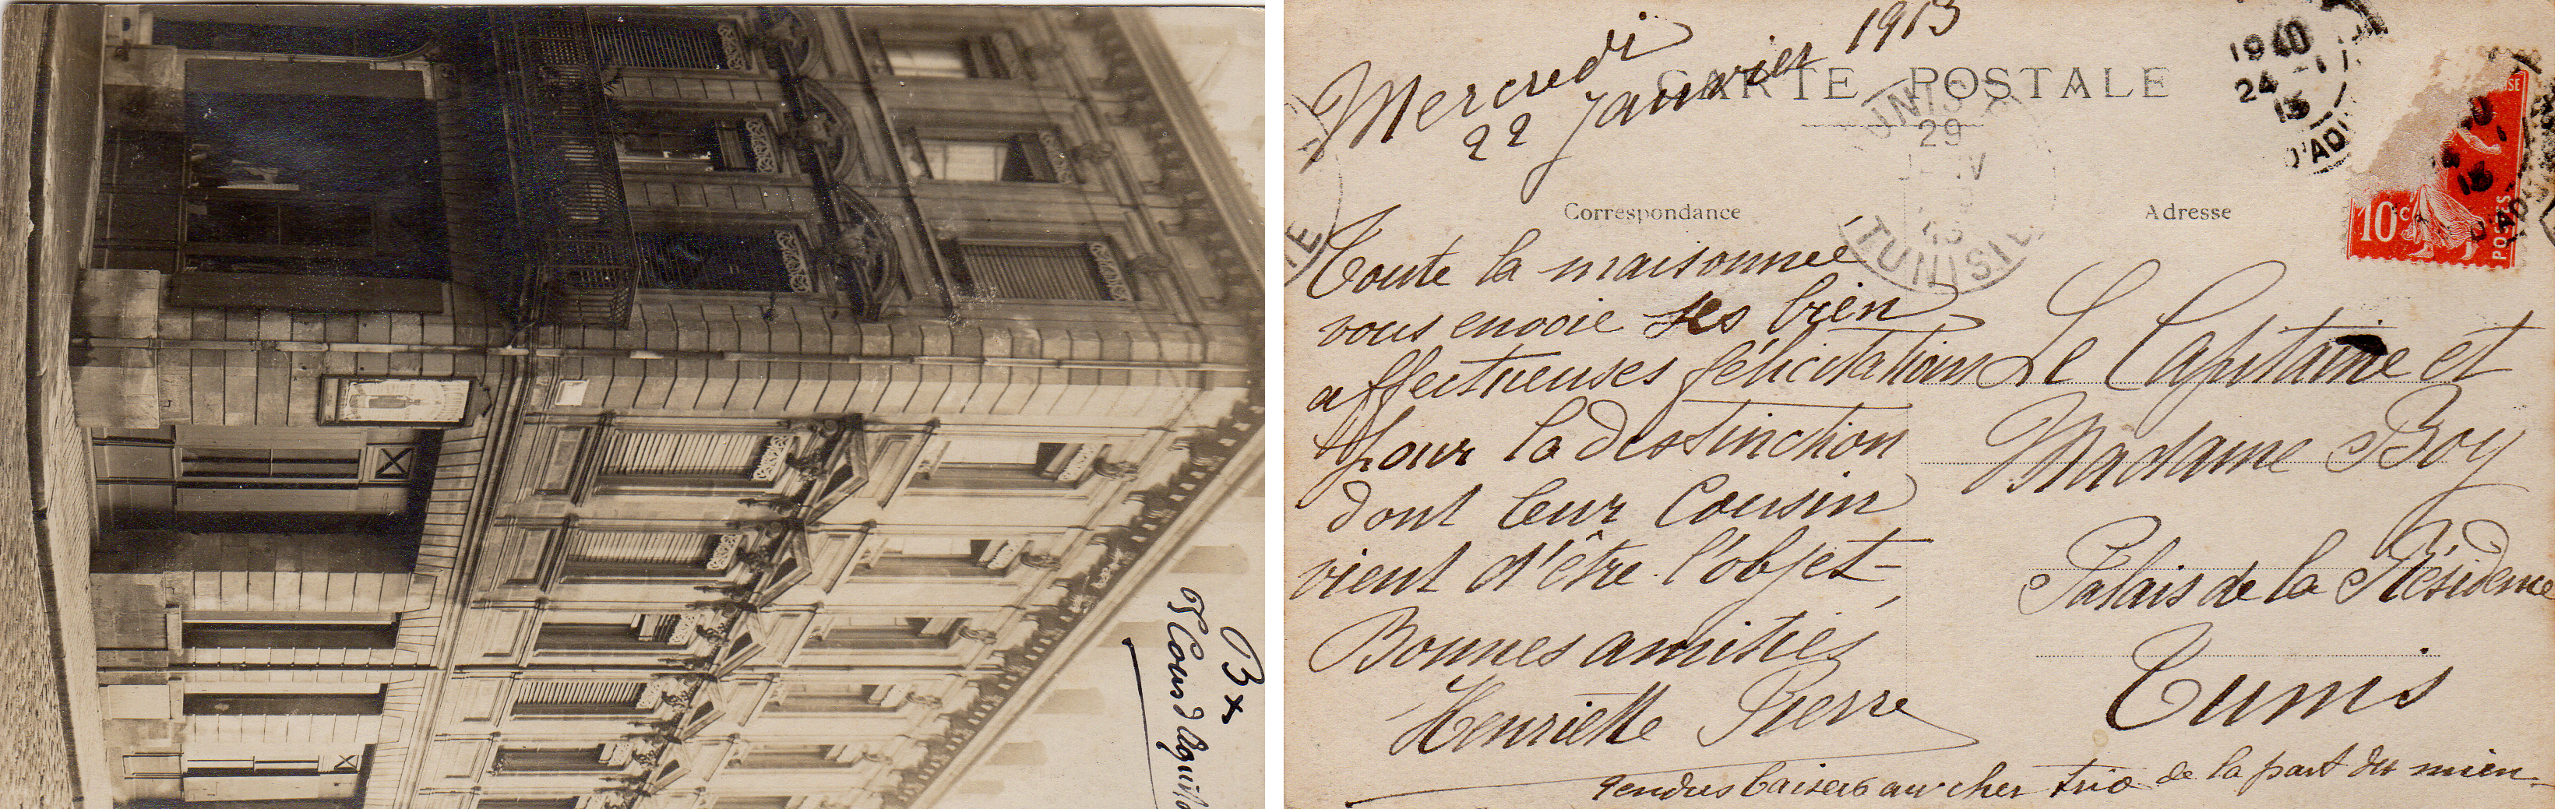 Bx
95 Cours d'Aquita
Mercredi
22 Janvier 1913
CARTE POSTALE
Correspondance
Adresse
1940
24 - 1
13
D'AQUI
TUNIS
29
JANV
13
TUNISIE
10c
POSTES
Toute la maisonnée
vous envoie ses bien
affectueuses félicitations
pour la distinction
dont leur Cousin
vient d'être l'objet -
Bonnes amitiés
Henriette Pierre
Tendres baisers au cher trio de la part du mien -
Le Capitaine et
Madame Boy
Palais de la Résidence
Tunis